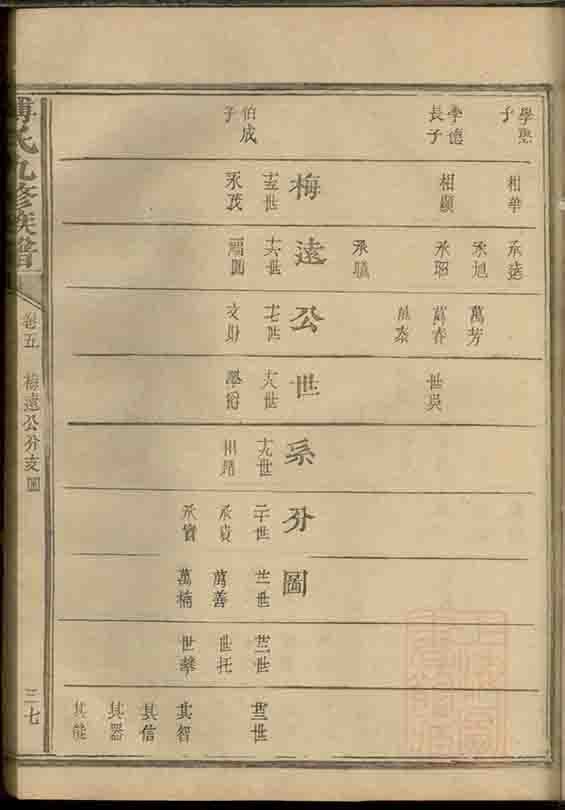 學聖子
李德長子
伯成子
相華
相顯
梅遠公世系分圖
十五世
永茂
永遠
永旭
永昭
永驥
十六世
萬芳
萬春
萬泰
十七世
文財
世吳
十八世
學裕
十九世
二十世
永貴
永寶
廿一世
萬善
萬楠
廿二世
世托
世華
廿三世
其智
其信
其器
其能
氏九修族譜
卷五
梅遠公分支圖
三七